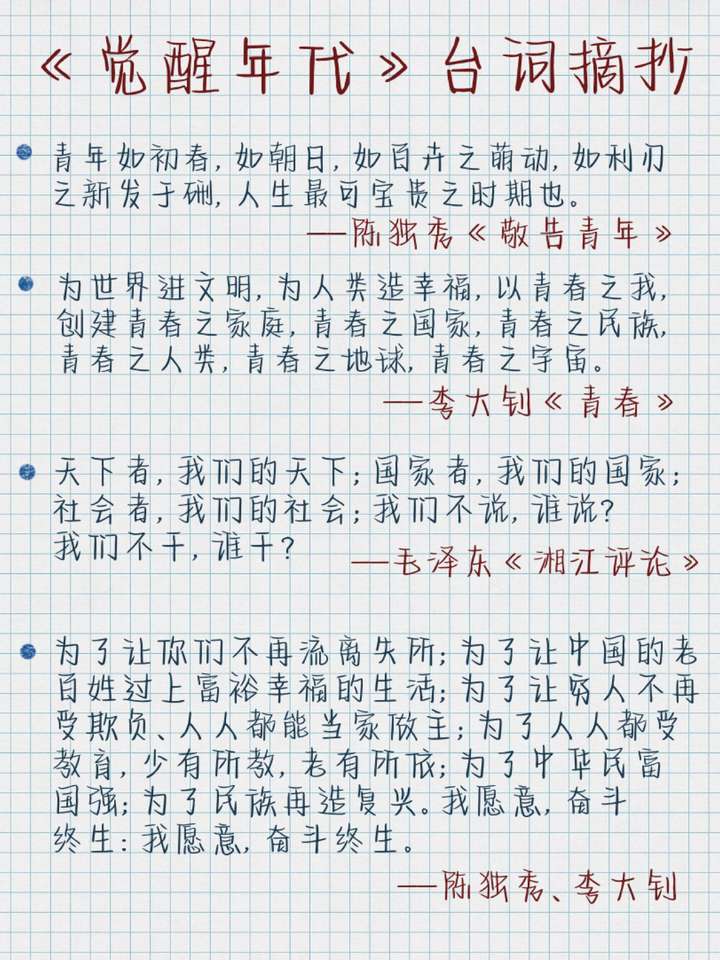 《觉醒年代》台词摘抄
青年如初春,如朝日,如百卉之萌动,如利刃
之新发于硎,人生最可宝贵之时期也。
——陈独秀《敬告青年》
为世界进文明,为人类造幸福,以青春之我,
创建青春之家庭,青春之国家,青春之民族,
青春之人类,青春之地球,青春之宇宙。
——李大钊《青春》
天下者,我们的天下;国家者,我们的国家;
社会者,我们的社会;我们不说,谁说?
我们不干,谁干?
——毛泽东《湘江评论》
为了让你们不再流离失所;为了让中国的老
百姓过上富裕幸福的生活;为了让穷人不再
受欺负、人人都能当家做主;为了人人都受
教育,少有所教,老有所依;为了中华民富
国强;为了民族再造复兴。我愿意,奋斗
终生:我愿意,奋斗终生。
——陈独秀、李大钊